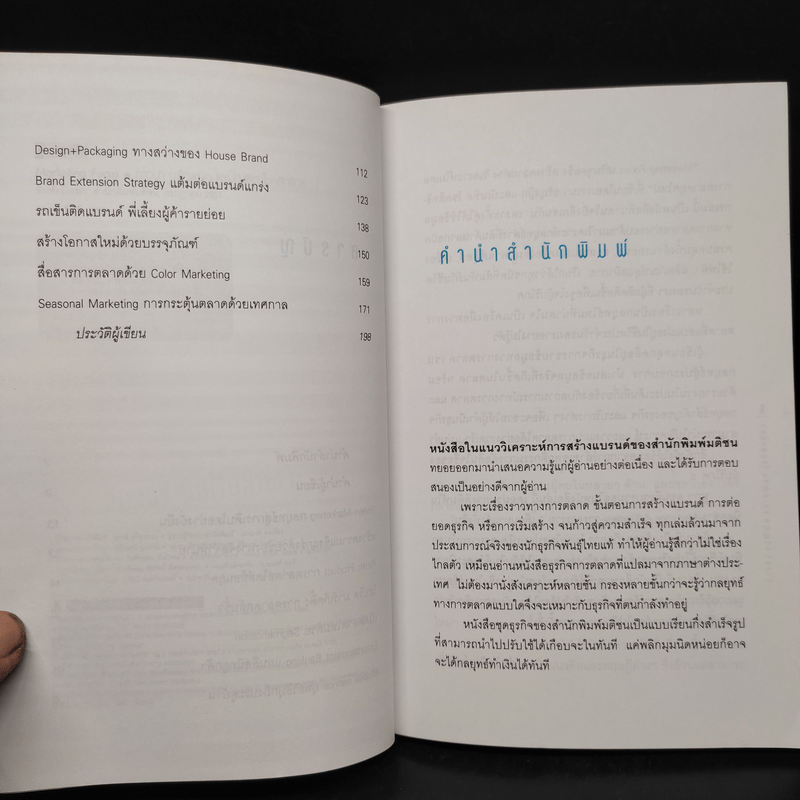 Design+Packaging ทางสว่างของ House Brand 112
Brand Extension Strategy แต้มต่อแบรนด์แกร่ง 123
รถเข็นติดแบรนด์ พี่เลี้ยงผู้ค้ารายย่อย 138
สร้างโอกาสใหม่ด้วยบรรจุภัณฑ์ 150
สื่อสารการตลาดด้วย Color Marketing 159
Seasonal Marketing การกระตุ้นตลาดด้วยเทศกาล 171
ประวัติผู้เขียน 198
คำนำสำนักพิมพ์
หนังสือในแนววิเคราะห์การสร้างแบรนด์ของสำนักพิมพ์มติชน
ทยอยออกมานำเสนอความรู้แก่ผู้อ่านอย่างต่อเนื่อง และได้รับการตอบ
สนองเป็นอย่างดีจากผู้อ่าน
เพราะเรื่องราวทางการตลาด ขั้นตอนการสร้างแบรนด์ การต่อ
ยอดธุรกิจ หรือการเริ่มสร้าง จนก้าวสู่ความสำเร็จ ทุกเล่มล้วนมาจาก
ประสบการณ์จริงของนักธุรกิจพันธุ์ไทยแท้ ทำให้ผู้อ่านรู้สึกว่าไม่ใช่เรื่อง
ไกลตัว เหมือนอ่านหนังสือธุรกิจการตลาดที่แปลมาจากภาษาต่างประ-
เทศ ไม่ต้องมานั่งสังเคราะห์หลายชั้น กรองหลายชั้นกว่าจะรู้ว่ากลยุทธ์
ทางการตลาดแบบใดจึงจะเหมาะกับธุรกิจที่ตนกำลังทำอยู่
หนังสือชุดธุรกิจของสำนักพิมพ์มติชนเป็นแบบเรียนกึ่งสำเร็จรูป
ที่สามารถนำไปปรับใช้ได้เกือบจะในทันที แค่พลิกมุมนิดหน่อยก็อาจ
จะได้กลยุทธ์ทำเงินได้ทันที